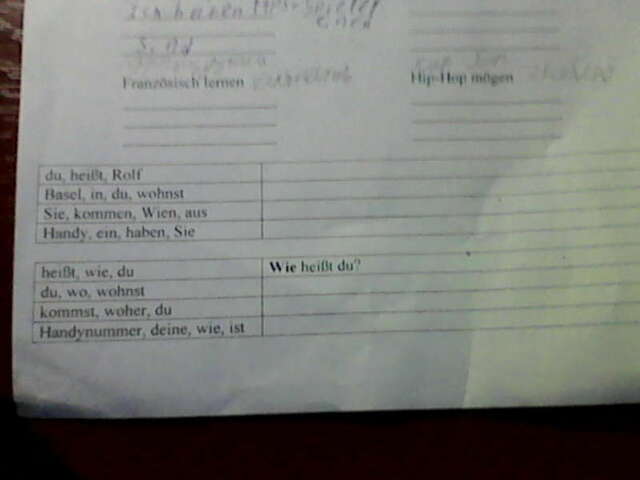 ich haben MP3-Spieler
sind
Französisch lernen
Hip-Hop mögen
du, heißt, Rolf
Basel, in, du, wohnst
Sie, kommen, Wien, aus
Handy, ein, haben, Sie
heißt, wie, du Wie heißt du?
du, wo, wohnst
kommst, woher, du
Handynummer, deine, wie, ist